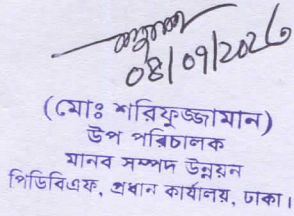 ০৪/০৭/২০২৫
(মোঃ শরিফুজ্জামান)
উপ পরিচালক
মানব সম্পদ উন্নয়ন
পিডিবিএফ, প্রধান কার্যালয়, ঢাকা।